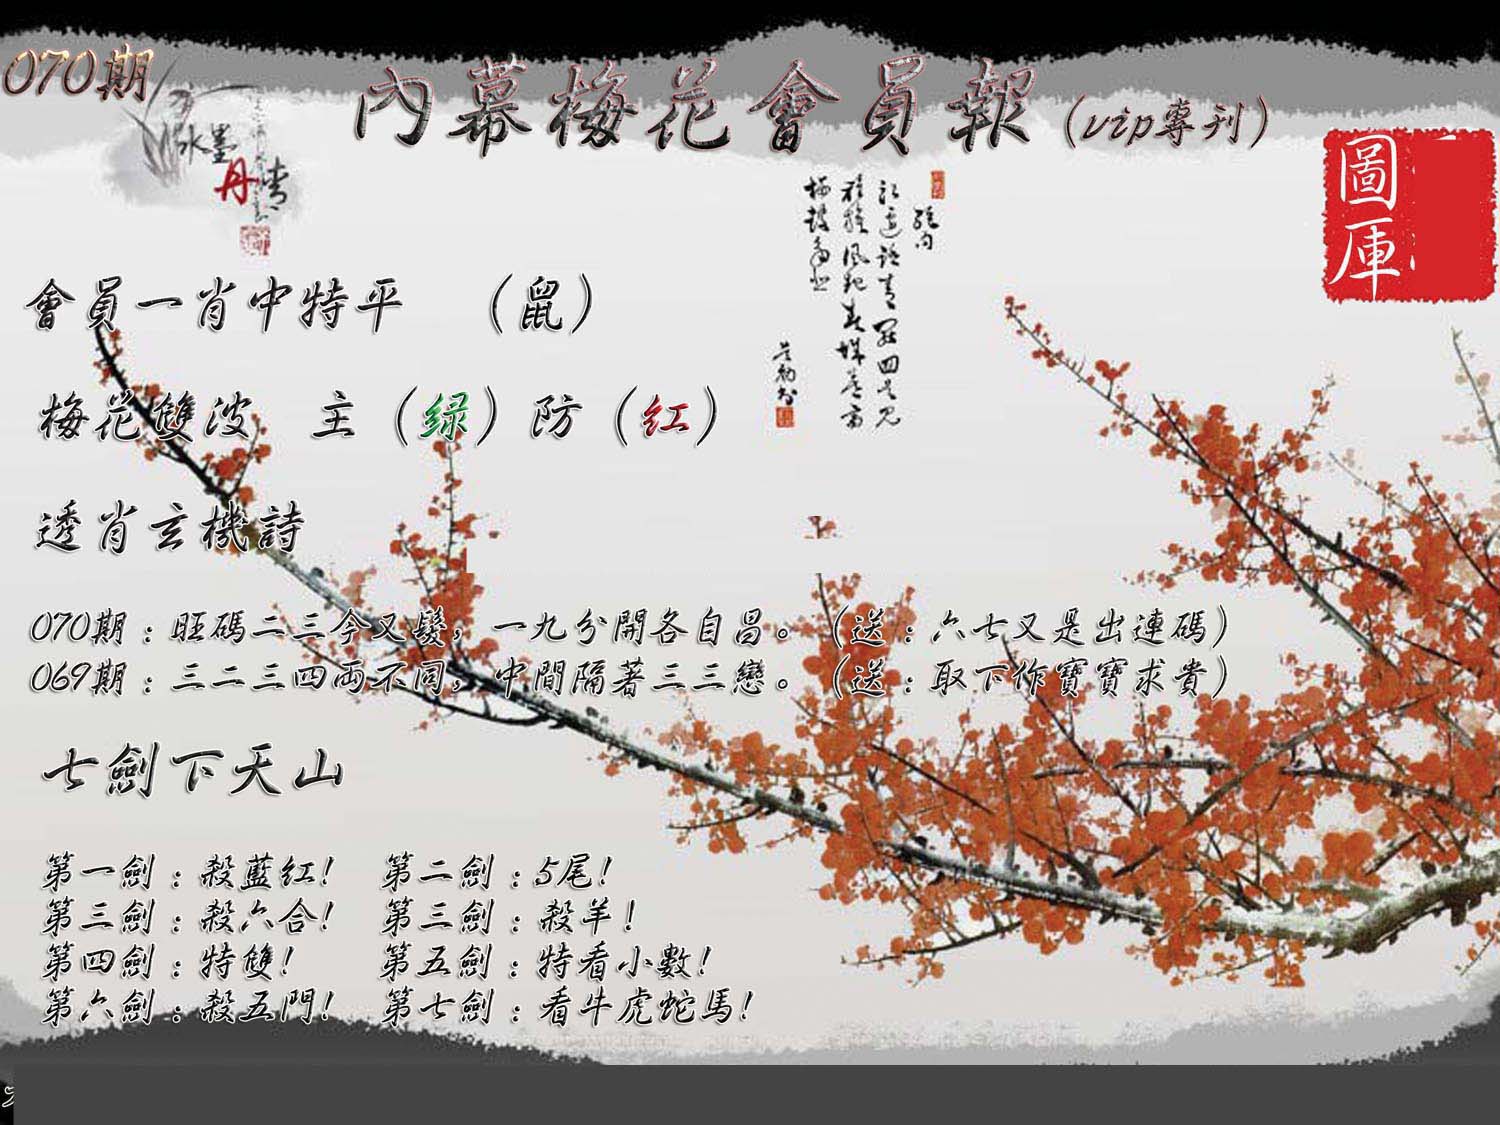 070期
內幕梅花會員報(vip專刊)
水墨
丹青
圖庫
會員一肖中特平 (鼠)
梅花雙波 主(绿)防(红)
透肖玄機詩
070期:旺碼二三今又發,一九分開各自昌。(送:六七又是出連碼)
069期:三二三四両不同,中間隔著三三戀。(送:取下作寶寶求貴)
七劍下天山
第一劍:殺藍红! 第二劍:5尾!
第三劍:殺六合! 第三劍:殺羊!
第四劍:特雙! 第五劍:特看小數!
第六劍:殺五門! 第七劍:看牛虎蛇馬!